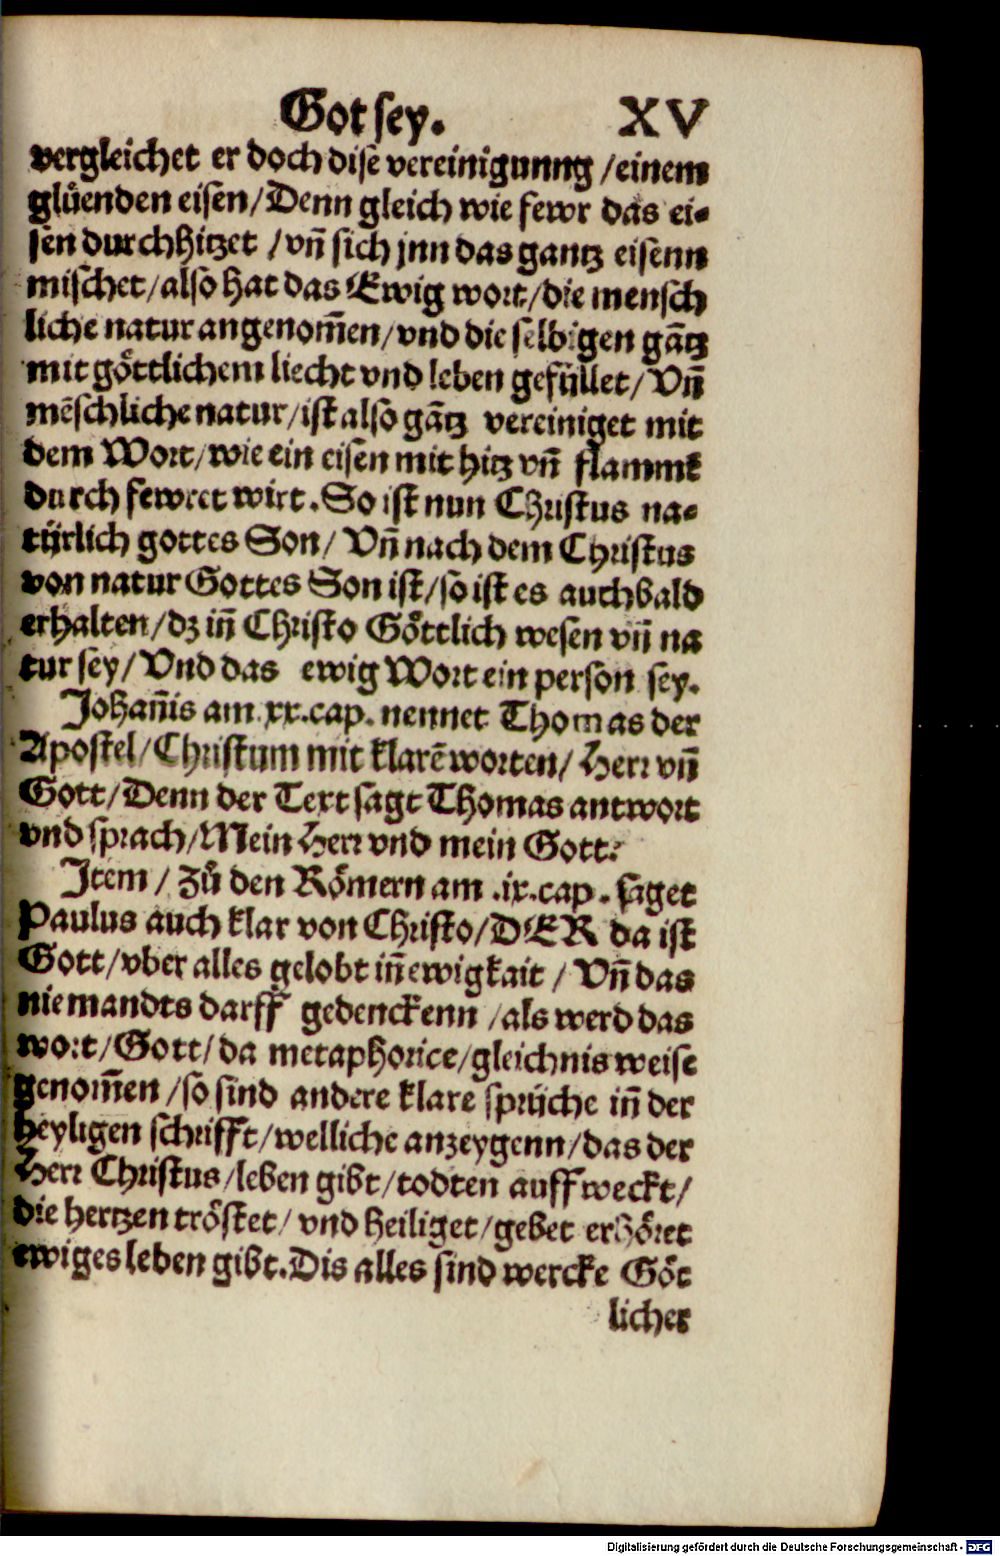 Got sey. XV
vergleichet er doch dise vereinigunng /einem
glůenden eisen/Denn gleich wie fewr das ei⸗
sen durchhitzet /vñ sich jnn das gantz eisenn
mischet/also hat das Ewig wort/die mensch
liche natur angenom̃en/vnd die selbigen gātz
mit gőttlichem liecht vnd leben gefüllet/Vñ
mēschliche natur/ist also gātz vereiniget mit
dem Wort/wie ein eisen mit hitz vñ flamme
durch fewret wirt.So ist nun Christus na⸗
türlich gottes Son/ Vñ nach dem Christus
von natur Gottes Son ist/so ist es auch bald
erhalten/dz iñ Christo Gőttlich wesen vñ na
tur sey/Vnd das ewig Wort ein person sey.
Johañis am .xx.cap. nennet Thomas der
Apostel/Christum mit klarē worten/Herr vñ
Gott/Denn der Text sagt Thomas antwort
vnd sprach/Mein Herr vnd mein Gott.
Item / zů den Rőmern am .ix.cap. saget
Paulus auch klar von Christo/DER da ist
Gott/vber alles gelobt iñ ewigkait / Vñ das
niemandts darff gedenckenn /als werd das
wort/Gott/da metaphorice/gleichnis weise
genom̃en /so sind andere klare sprüche iñ der
heyligen schrifft/welliche anzeygenn/das der
Herr Christus/leben gibt/todten auffweckt/
die hertzen trőstet/ vnd heiliget/gebet erhőret
ewiges leben gibt.Dis alles sind wercke Gőt
licher
Digitalisierung gefördert durch die Deutsche Forschungsgemeinschaft - DFG